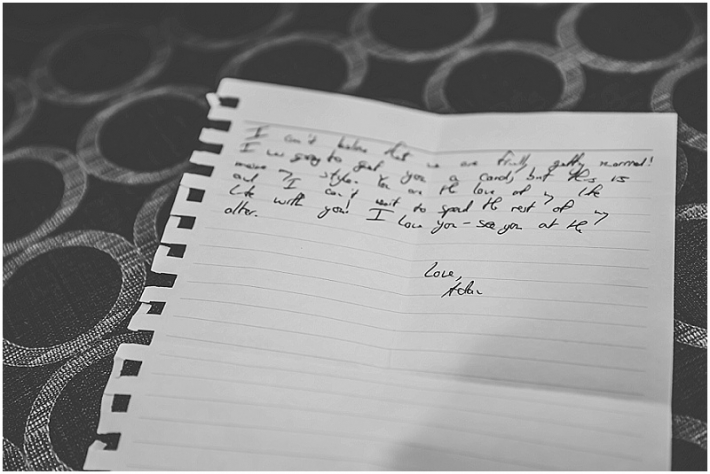 I can't believe that we are finally getting married!
I was going to get you a card, but this is
more my style. You are the love of my life
and I can't wait to spend the rest of my
life with you! I love you - see you at the
alter.
Love,
Adam